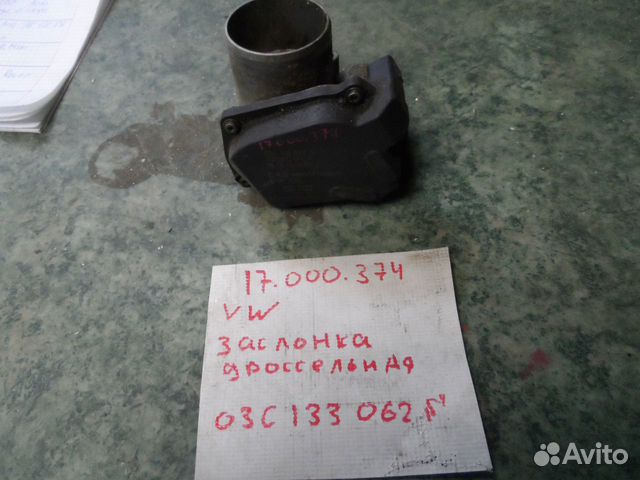 17.000.374
17.000.374
VW
заслонка
дроссельная
03C 133 062 Б4
Avito